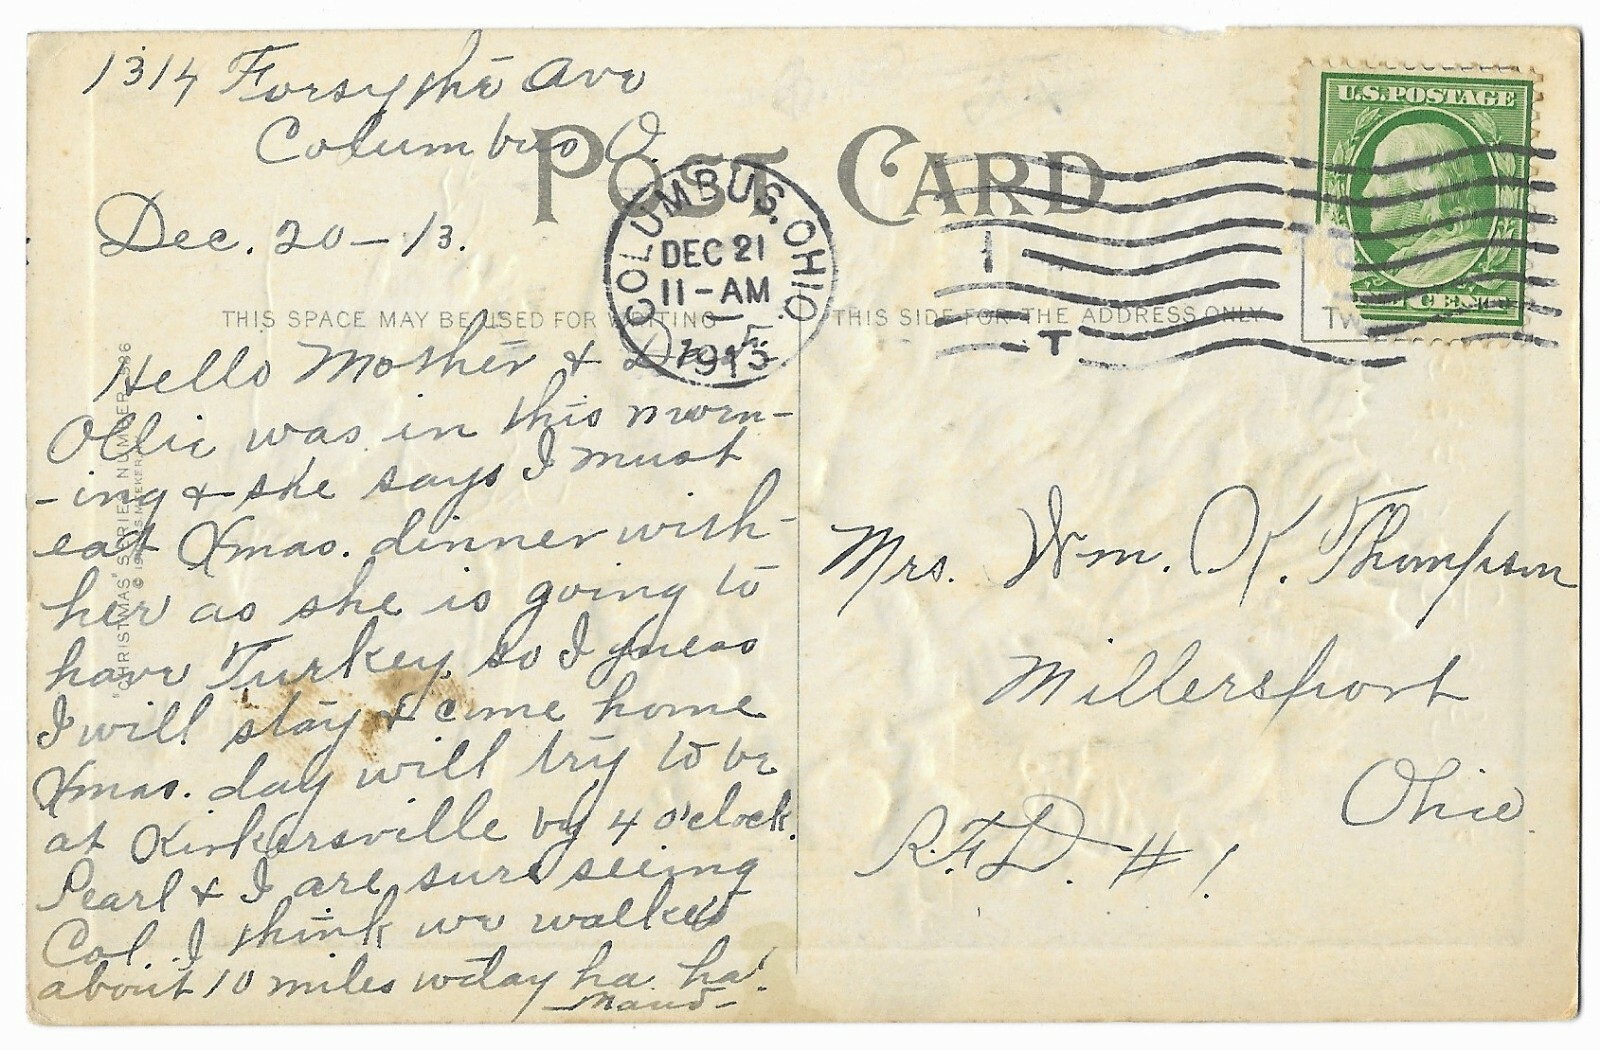 1314 Forsythe Ave
Columbus O.
Dec. 20 - 13.
POST CARD
COLUMBUS, OHIO
DEC 21
11-AM
1913
U.S. POSTAGE
THIS SPACE MAY BE USED FOR WRITING
THIS SIDE FOR THE ADDRESS ONLY
Hello Mother &
Ollie was in this morn-
-ing & she says I must
eat Xmas. dinner with-
her as she is going to
have Turkey so I guess
I will stay & come home
Xmas. day will try to be
at Kirkersville by 4 o'clock.
Pearl & I are sure seeing
Col. I think we walked
about 10 miles today ha ha!
Maud-
Mrs. Wm. K. Thompson
Millersport
Ohio.
R.F.D. #1.
"CHRISTMAS" SERIES NUMBER